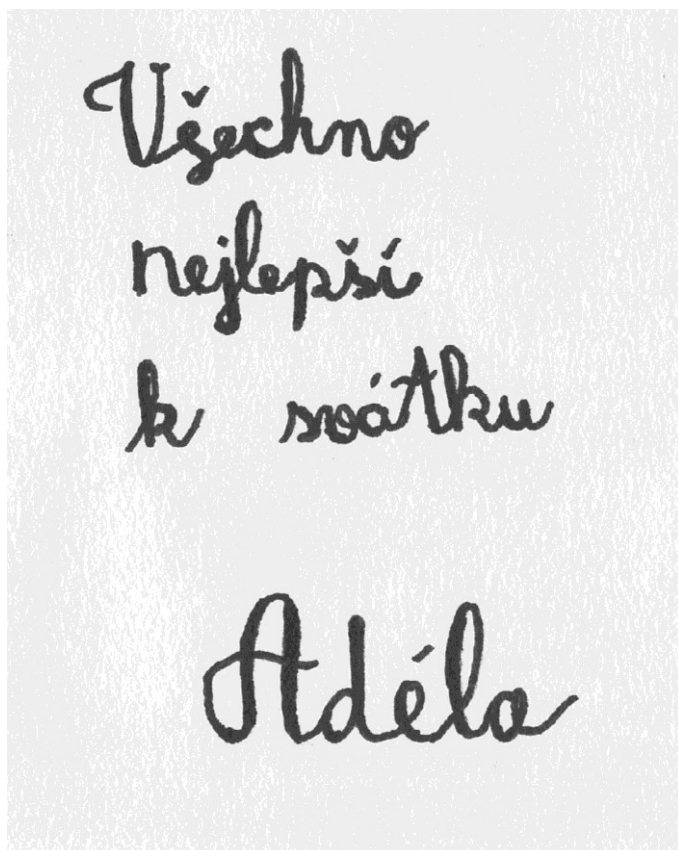 Všechno
nejlepší
k svátku
Adéla